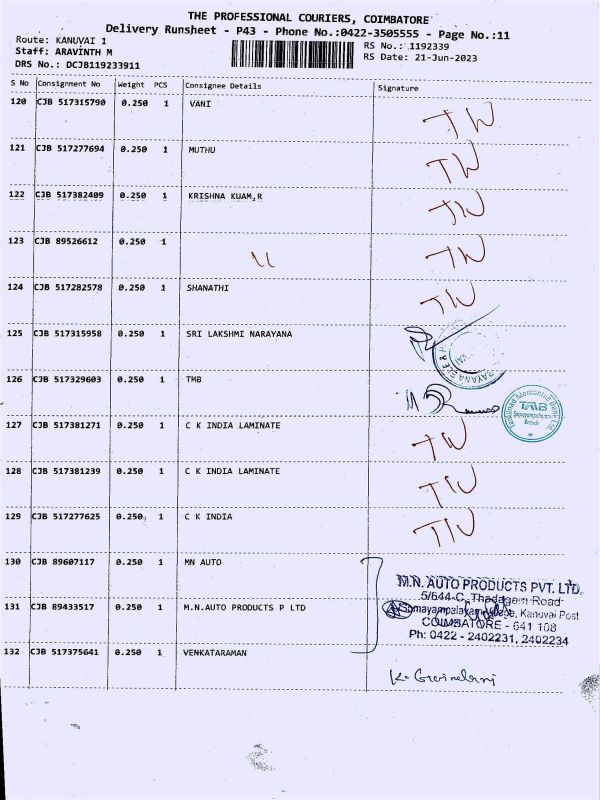 THE PROFESSIONAL COURIERS, COIMBATORE
Delivery Runsheet - P43 - Phone No.:0422-3505555 - Page No.:11
Route: KANUVAI 1
RS No.: 1192339
Staff: ARAVINTH M
RS Date: 21-Jun-2023
DRS No.: DCJB119233911
S No Consignment No Weight PCS Consignee Details Signature
120 CJB 517315790 0.250 1 VANI TW
121 CJB 517277694 0.250 1 MUTHU TW
122 CJB 517382409 0.250 1 KRISHNA KUAM,R TW
123 CJB 89526612 0.250 1 TW
124 CJB 517282578 0.250 1 SHANATHI TW
125 CJB 517315958 0.250 1 SRI LAKSHMI NARAYANA
126 CJB 517329603 0.250 1 TMB
Tamilnad Mercantile Bank Ltd
TMB
Branch
127 CJB 517381271 0.250 1 C K INDIA LAMINATE TW
128 CJB 517381239 0.250 1 C K INDIA LAMINATE TW
129 CJB 517277625 0.250 1 C K INDIA TW
130 CJB 89607117 0.250 1 MN AUTO
M.N. AUTO PRODUCTS PVT. LTD.
5/644-C, Thadagam Road
131 CJB 89433517 0.250 1 M.N.AUTO PRODUCTS P LTD
Somayampalayam Village, Kanuvai Post
COIMBATORE - 641 108
Ph: 0422 - 2402231, 2402234
132 CJB 517375641 0.250 1 VENKATARAMAN